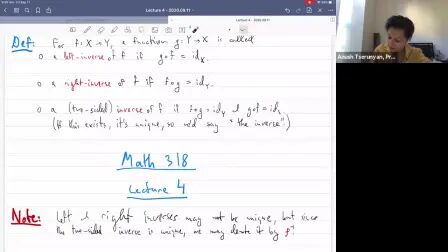 Lecture 4 - 2020.09.11
Def: For f: X → Y, a function g: Y → X is called
o a left-inverse of f if g∘f = id_X.
o a right-inverse of f if f∘g = id_Y.
o a (two-sided) inverse of f if f∘g = id_Y & g∘f = id_X
(If this exists, it's unique, so we'd say "the inverse".)
Math 318
Lecture 4
Note: Left & right inverses may not be unique, but since
the two-sided inverse is unique, we may denote it by f⁻¹.
Anush Tserunyan, Pr...